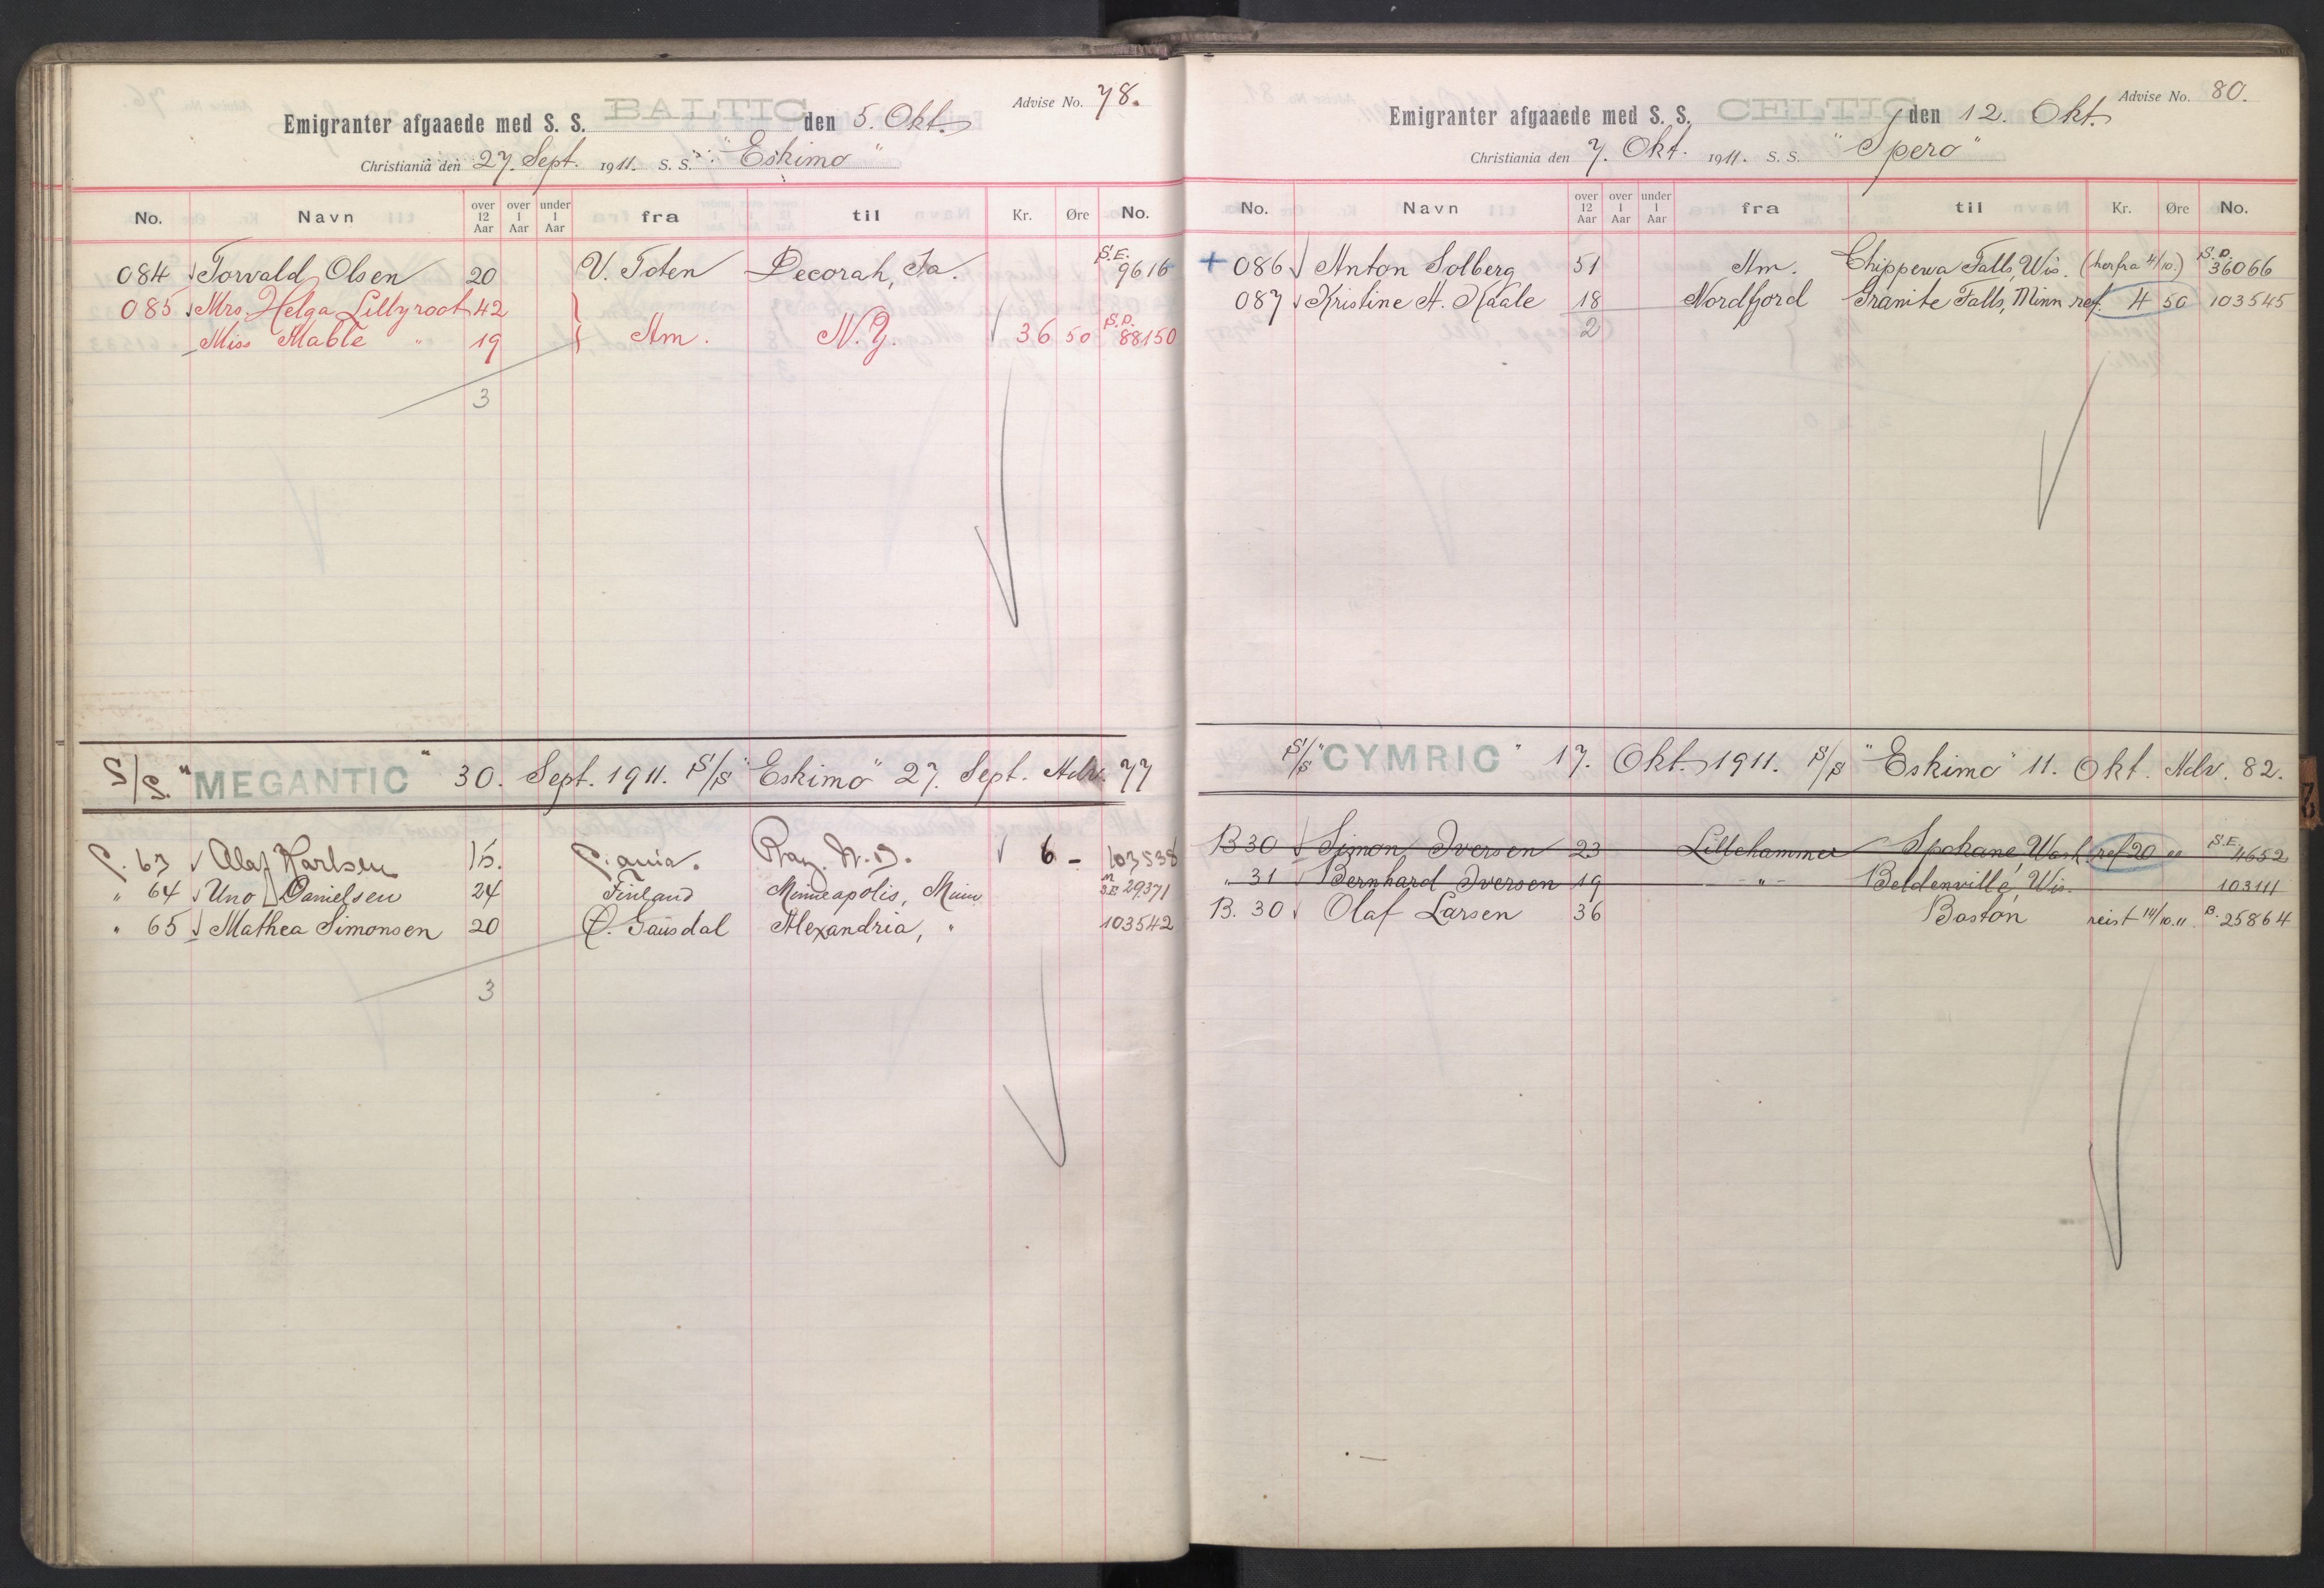 Advise No. 78.
Emigranter afgaaede med S. S. BALTIC den 5. Okt.
Christiania den 27. Sept. 1911. S. S. "Eskimo"
No. Navn over 12 Aar over 1 Aar under 1 Aar fra til Kr. Øre No.
084 Torvald Olsen 20 V. Toten Decorah, Ia. S.E. 9616
085 Mrs. Helga Lillyroot 42
Miss Mable " 19 Am. N.Y. 36 50 S.P. 88150
3
S/S. "MEGANTIC" 30. Sept. 1911. S/S "Eskimo" 27. Sept. Adv. 77
C. 63 Olaf Karlsen 15. C.ania. Ray. N.D. 6 - 103538
" 64 Uno Danielsen 24 Finland Minneapolis, Minn 29371
" 65 Mathea Simonsen 20 Ø. Gausdal Alexandria, " 103542
3
Advise No. 80.
Emigranter afgaaede med S. S. CELTIC den 12. Okt.
Christiania den 7. Okt. 1911. S. S. "Spero"
No. Navn over 12 Aar over 1 Aar under 1 Aar fra til Kr. Øre No.
+ 086 Anton Solberg 51 Am. Chippewa Falls, Wis. (herfra 4/10.) S.P. 36066
087 Kristine A. Kaale 18 Nordfjord Granite Falls, Minn ref. 4 50 103545
2
S/S "CYMRIC" 17. Okt. 1911. S/S "Eskimo" 11. Okt. Adv. 82.
B 30 Simon Iversen 23 Lillehammer Spokane, Wash. ref 20 S.E. 4652
" 31 Bernhard Iversen 19 -"- Beldenville, Wis. 103111
B. 30 Olaf Larsen 36 Boston reist 14/10.11. B. 25864